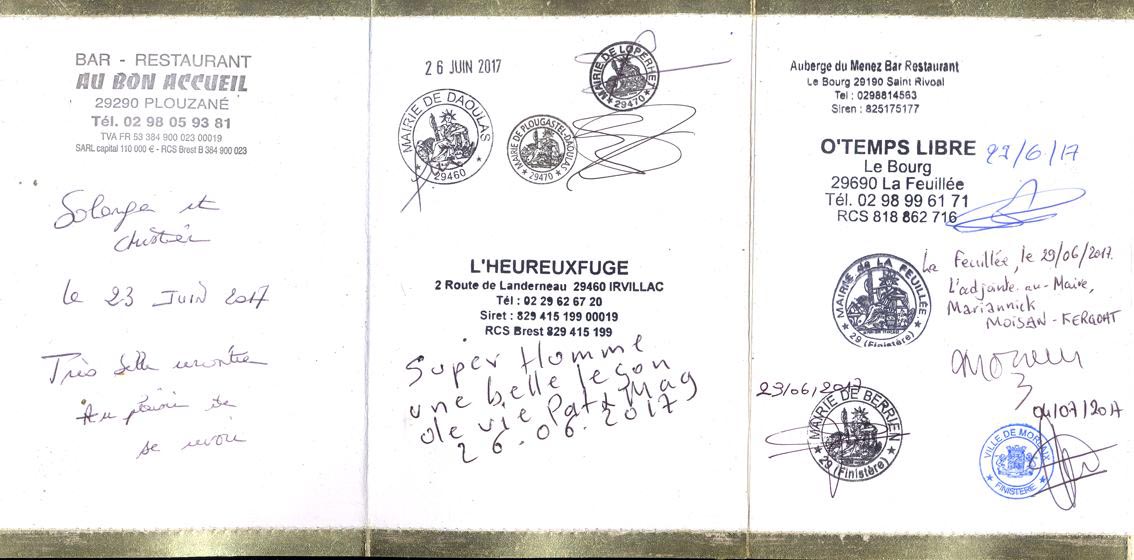 BAR - RESTAURANT
AU BON ACCUEIL
29290 PLOUZANÉ
Tél. 02 98 05 93 81
TVA FR 53 384 900 023 00019
SARL capital 110 000 € - RCS Brest B 384 900 023
Solange et
le 23 Juin 2017
Très belle rencontre
Au plaisir de
se revoir
26 JUIN 2017
MAIRIE DE LOPERHET
29470
MAIRIE DE DAOULAS
29460
MAIRIE DE PLOUGASTEL-DAOULAS
29470
L'HEUREUXFUGE
2 Route de Landerneau 29460 IRVILLAC
Tél : 02 29 62 67 20
Siret : 829 415 199 00019
RCS Brest 829 415 199
Super Homme
une belle leçon
de vie Pat & Mag
26.06.2017
Auberge du Menez Bar Restaurant
Le Bourg 29190 Saint Rivoal
Tel : 0298814563
Siren : 825175177
O'TEMPS LIBRE 22/6/17
Le Bourg
29690 La Feuillée
Tél. 02 98 99 61 71
RCS 818 862 716
MAIRIE de LA FEUILLÉE
29 (Finistère)
La Feuillée, le 29/06/2017.
L'adjointe au Maire,
Mariannick
MOISAN - KERGOAT
23/06/2017
MAIRIE DE BERRIEN
29 (Finistère)
04/07/2017
VILLE DE MORLAIX
FINISTERE